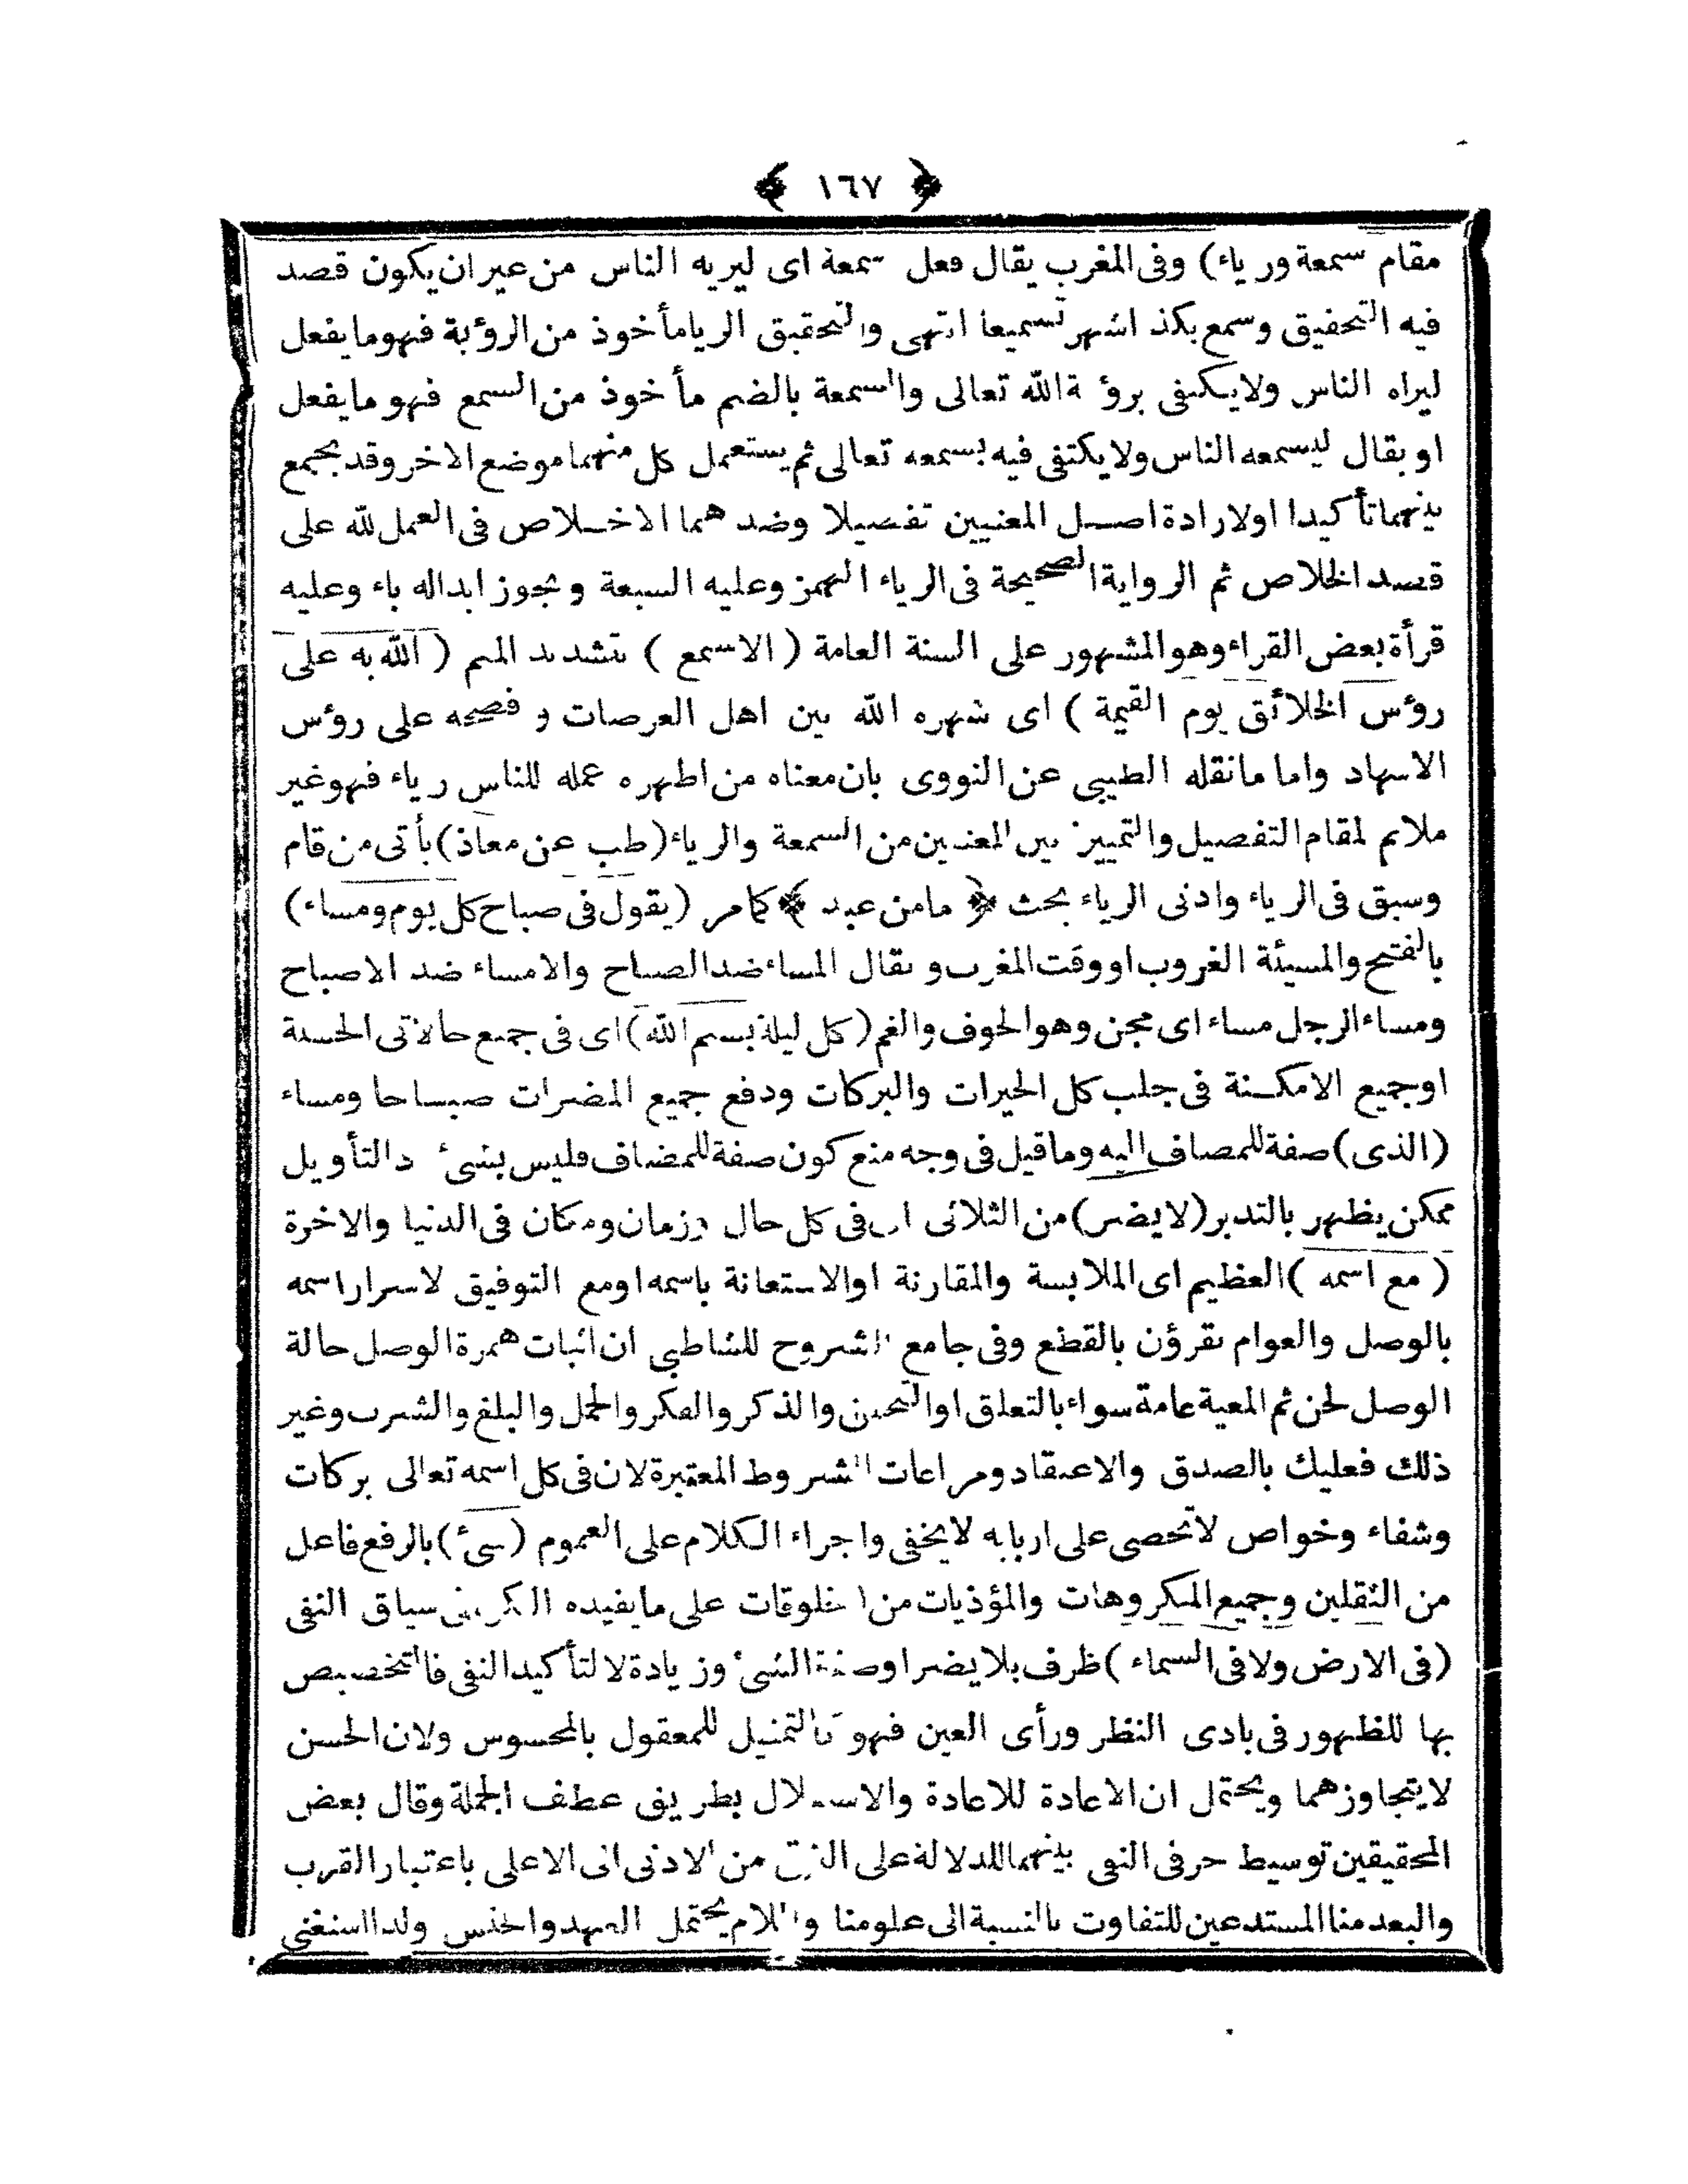 ﴿ ١٦٧ ﴾
مقام سمعة ورياء) وفى المغرب يقال فعل سمعة اى ليريه الناس من غير ان يكون قصد
فيه التحقيق وسمع بكذا شهر تسميعا انتهى والتحقيق الريا مأخوذ من الرؤية فهو ما يفعل
ليراه الناس ولا يكتفى برؤية الله تعالى والسمعة بالضم مأخوذ من السمع فهو ما يفعل
او يقال ليسمعه الناس ولا يكتفى فيه بسمعه تعالى ثم يستعمل كل منهما موضع الاخر وقد يجمع
بينهما تأكيدا اولارادة اصل المعنيين تفصيلا وضدهما الاخلاص فى العمل لله على
قصد الخلاص ثم الرواية الصحيحة فى الرياء الهمز وعليه السبعة ويجوز ابداله ياء وعليه
قرأة بعض القراء وهو المشهور على السنة العامة (الاسمع) بتشديد الميم (الله به على
رؤس الخلائق يوم القيمة) اى شهره الله بين اهل العرصات وفضحه على رؤس
الاشهاد واما ما نقله الطيبى عن النووى بان معناه من اظهره عمله للناس رياء فهو غير
ملايم لمقام التفصيل والتمييز بين المعنيين من السمعة والرياء (طب عن معاذ) يأتى من قام
وسبق فى الرياء وادنى الرياء بحث ﴿ مامن عبد ﴾ كمامر (يقول فى صباح كل يوم ومساء)
بالفتح والمسيئة الغروب او وقت المغرب ويقال المساء ضد الصباح والامساء ضد الاصباح
ومساء الرجل مساء اى مجن وهو الخوف والغم (كل ليلة بسم الله) اى فى جميع حالاتى الحسنة
اوجميع الامكنة فى جلب كل الخيرات والبركات ودفع جميع المضرات صباحا ومساء
(الذى) صفة للمضاف اليه وما قيل فى وجه منع كون صفة للمضاف فليس بشئ والتأويل
ممكن يظهر بالتدبر (لايضر) من الثلاثى اى فى كل حال وزمان ومكان فى الدنيا والاخرة
(مع اسمه) العظيم اى الملابسة والمقارنة اوالاستعانة باسمه اومع التوفيق لاسرار اسمه
بالوصل والعوام يقرؤن بالقطع وفى جامع الشروح للشاطبى ان اثبات همزة الوصل حالة
الوصل لحن ثم المعية عامة سواء بالتعلق او والذكر والفكر والحمل والبلغ والشرب وغير
ذلك فعليك بالصدق والاعتقاد ومراعات الشروط المعتبرة لان فى كل اسمه تعالى بركات
وشفاء وخواص لاتحصى على اربابه لايخفى واجراء الكلام على العموم (شئ) بالرفع فاعل
من الثقلين وجميع المكروهات والمؤذيات من المخلوقات على ما يفيده سياق النفى
(فى الارض ولا فى السماء) ظرف بلايضر اوصفة الشئ وزيادة لا لتأكيد النفى فالتخصيص
بها للظهور فى بادى النظر ورأى العين فهو كالتمثيل للمعقول بالمحسوس ولان الحسن
لايتجاوزهما ويحتمل ان الاعادة للاعادة والاستقلال بطريق عطف الجملة وقال بعض
المحقيقين توسيط حرفى النفى بينهما للدلالة على من الادنى الى الاعلى باعتبار القرب
والبعد منا المستدعين للتفاوت بالنسبة الى علومنا واللام يحتمل العهد والجنس ولذا استغنى